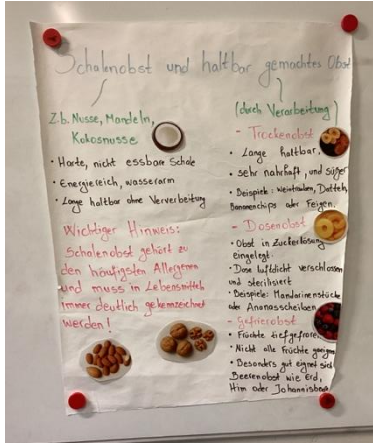 Schalenobst und haltbar gemachtes Obst
Z.b. Nüsse, Mandeln,
Kokosnüsse
• Harte, nicht essbare Schale
• Energiereich, wasserarm
• Lange haltbar ohne Ververbeitung
Wichtiger Hinweis:
Schalenobst gehört zu
den häufigsten Allergenen
und muss in Lebensmitteln
immer deutlich gekennzeichnet
werden!
(durch Verarbeitung)
- Trockenobst
• Lange haltbar,
• sehr nahrhaft, und süßer
• Beispiele: Weintrauben, Datteln,
Bananenchips oder Feigen.
- Dosenobst
• Obst in Zuckerlösung
eingelegt.
• Dose luftdicht verschlossen
und sterilisiert
• Beispiele: Mandarinenstücke
oder Ananasscheiben
- Gefrierobst
• Früchte tiefgefroren
• Nicht alle Früchte
• Besonders gut eignet sich
Beerenobst wie Erd,
Him oder